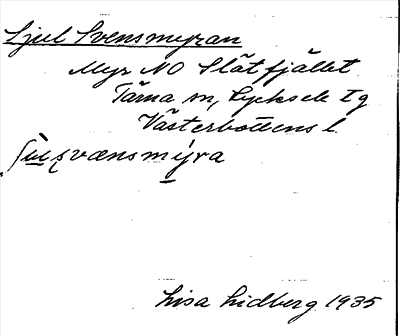 Ljul Svensmyran
Myr NO Slätfjället
Tärna sn, Lycksele lg
Västerbottens l
ʃʉl svænsmyra
Lisa Lidberg 1935